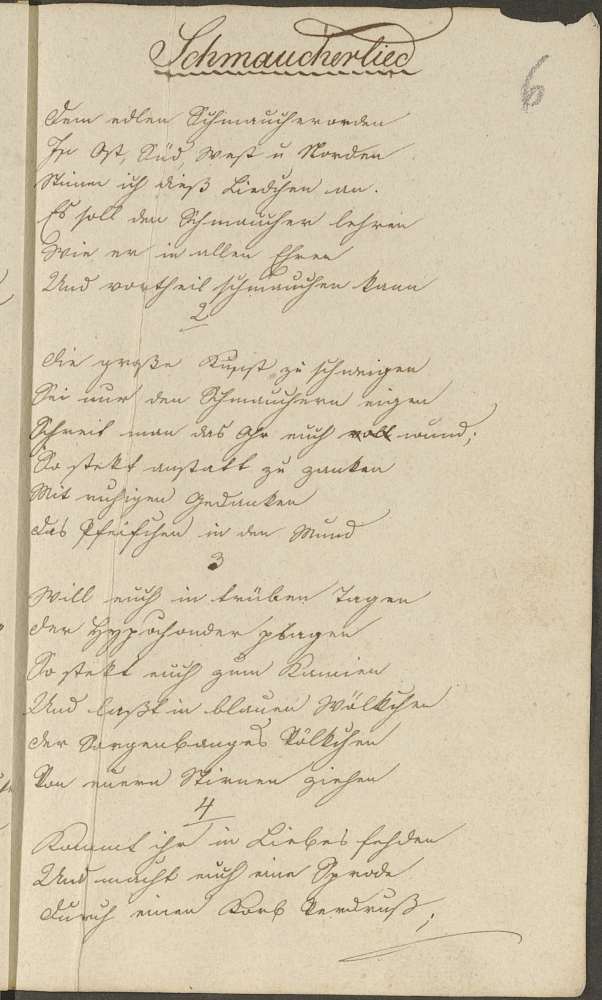 Schmaucherlied
6
Dem edlen Schmaucherorden
In Ost, Süd, West u Norden
Stimm ich dieß Liedchen an.
Es soll den Schmaucher lehren
Wie er in allen Ehren
Und vortheil schmauchen kann
2
Die große Kunst zu schweigen
Sei nur den Schmauchern eigen
Schreit man das Ohr euch voll wund;
So stekt anstatt zu zanken
Mit ruhigen Gedanken
Das Pfeifchen in den Mund
3
Will euch in trüben Tagen
Der Hypochonder plagen
So stekt euch zum Kamien
Und laßt in blauen Wölkchen
Der Sorgen banges Völkchen
Von euern Stirnen ziehen
4
Kommt ihr in Liebes fehden
Und macht euch eine Spröde
Durch einen Korb Verdruß;